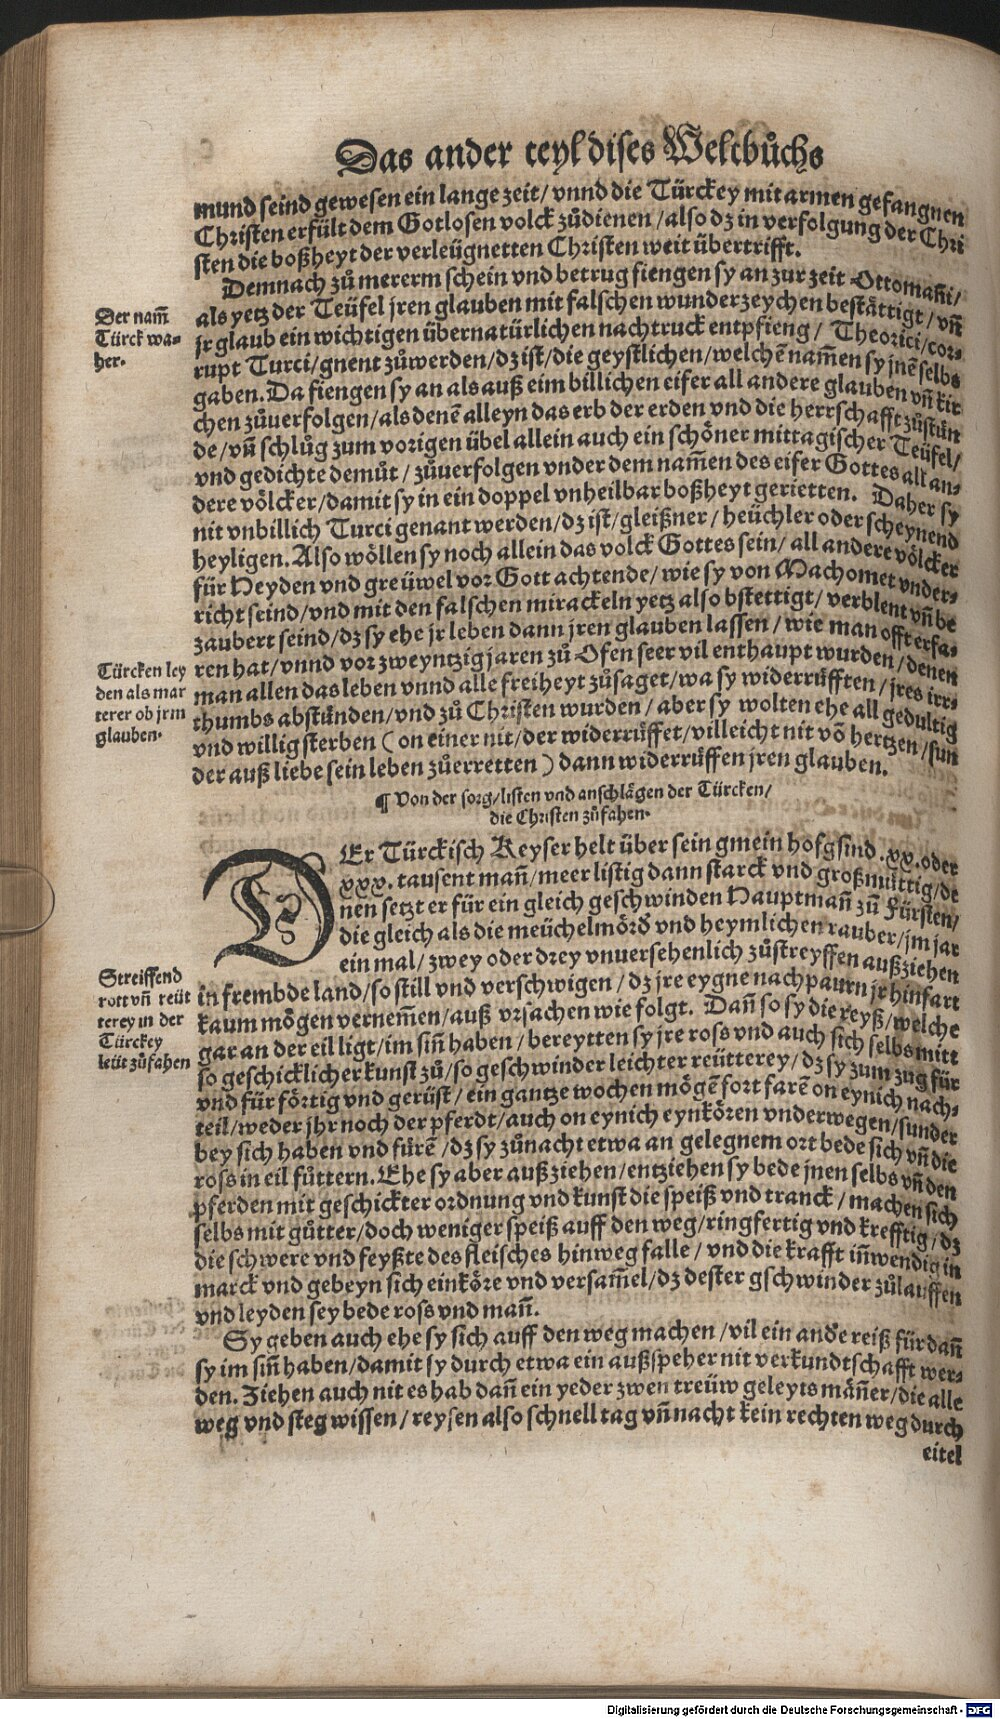 Das ander teyl dises Weltbůchs
mund seind gewesen ein lange zeit/ vnnd die Türckey mit armen gefangnen
Christen erfült dem Gotlosen volck zůdienen/ also dz in verfolgung der Chri
sten die boßheyt der verleügnetten Christen weit übertrifft.
Demnach zů mererm schein vnd betrug fiengen sy an zur zeit Ottomañi/
als yetz der Teüfel jren glauben mit falschen wunderzeychen bestättigt/ vñ
jr glaub ein wichtigen übernatürlichen nachtruck entpfieng/ Theorici/ cor-
rupt Turci/ gnent zůwerden/ dz ist/ die geystlichen/ welchē nam̃en sy jnē selbs
gaben. Da fiengen sy an als auß eim billichen eifer all andere glauben vñ kir
chen zůuerfolgen/ als denē alleyn das erb der erden vnd die herrschafft zůstün
de/ vñ schlůg zum vorigen übel allein auch ein schöner mittagischer Teüfel/
vnd gedichte demůt/ zůuerfolgen vnder dem nam̃en des eifer Gottes all an-
dere völcker/ damit sy in ein doppel vnheilbar boßheyt gerietten. Daher sy
nit vnbillich Turci genant werden/ dz ist/ gleißner/ heüchler oder scheynend
heyligen. Also wöllen sy noch allein das volck Gottes sein/ all andere völcker
für Heyden vnd greüwel vor Gott achtende/ wie sy von Machomet vnder-
richt seind/ vnd mit den falschen mirackeln yetz also bstettigt/ verblent vñ be
zaubert seind/ dz sy ehe jr leben dann jren glauben lassen/ wie man offt erfa-
ren hat/ vnnd vor zweyntzig jaren zů Ofen seer vil enthaupt wurden/ denen
man allen das leben vnnd alle freiheyt zůsaget/ wa sy widerrůfften/ jres irr-
thumbs abstünden/ vnd zů Christen wurden/ aber sy wolten ehe all gedultig
vnd willig sterben (on einer nit/ der widerrůffet/ villeicht nit võ hertzen/ sun
der auß liebe sein leben zůerretten) dann widerrůffen jren glauben.
Der nam̃
Türck wa-
her.
Türcken ley
den als mar
terer ob jrm
glauben.
¶ Von der sorg/ listen vnd anschlägen der Türcken/
die Christen zůfahen.
DEr Türckisch Keyser helt über sein gmein hofgsind .xx. oder
xxx. tausent mañ/ meer listig dann starck vnd großmüttig/ de
nen setzt er für ein gleich geschwinden Hauptmañ zů Fürsten/
die gleich als die meüchelmörd̃ vnd heymlichen rauber/ jm jar
ein mal/ zwey oder drey vnuersehenlich zůstreyffen außziehen
in frembde land/ so still vnd verschwigen/ dz jre eygne nachpaurn jr hinfart
kaum mögen vernem̃en/ auß vrsachen wie folgt. Dañ so sy die reyß/ welche
gar an der eil ligt/ im siñ haben/ bereytten sy jre ross vnd auch sich selbs mitt
so geschicklicher kunst zů/ so geschwinder leichter reütterey/ dz sy zum zug für
vnd für förtig vnd gerüst/ ein gantze wochen mögē fort farē on eynich nach-
teil/ weder jhr noch der pferdt/ auch on eynich eynkören vnderwegen/ sunder
bey sich haben vnd fürē/ dz sy zůnacht etwa an gelegnem ort bede sich vñ die
ross in eil fůttern. Ehe sy aber außziehen/ entziehen sy bede jnen selbs vñ den
pferden mit geschickter ordnung vnd kunst die speiß vnd tranck/ machen sich
selbs mit gůtter/ doch weniger speiß auff den weg/ ringfertig vnd krefftig/ dz
die schwere vnd feyßte des fleisches hinweg falle/ vnd die krafft iñwendig in
marck vnd gebeyn sich einköre vnd versam̃el/ dz dester gschwinder zůlauffen
vnd leyden sey bede ross vnd mañ.
Streiffend
rott vñ reüt
terey in der
Türckey
leüt zůfahen
Sy geben auch ehe sy sich auff den weg machen/ vil ein andẽ reiß für dañ
sy im siñ haben/ damit sy durch etwa ein außspeher nit verkundtschafft wer-
den. Ziehen auch nit es hab dañ ein yeder zwen treüw geleyts mäñer/ die alle
weg vnd steg wissen/ reysen also schnell tag vñ nacht kein rechten weg durch
eitel
Digitalisierung gefördert durch die Deutsche Forschungsgemeinschaft - DFG